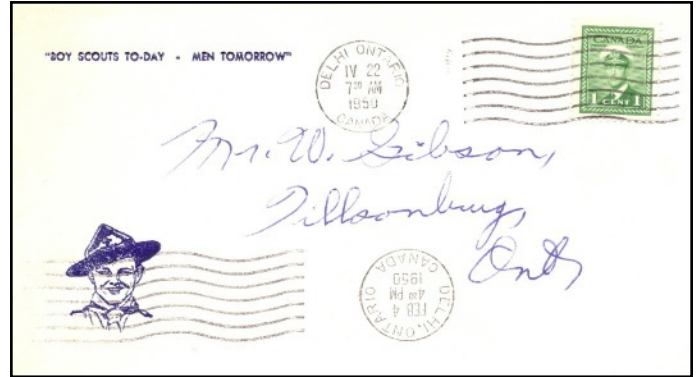 "BOY SCOUTS TO-DAY - MEN TOMORROW"
DELHI ONTARIO
IV 22
7:30 AM
1950
CANADA
CANADA
1 CENT 1
Mr. W. Gibson,
Tillsonburg,
Ont,
DELHI, ONTARIO
FEB 4
4:00 PM
1950
CANADA